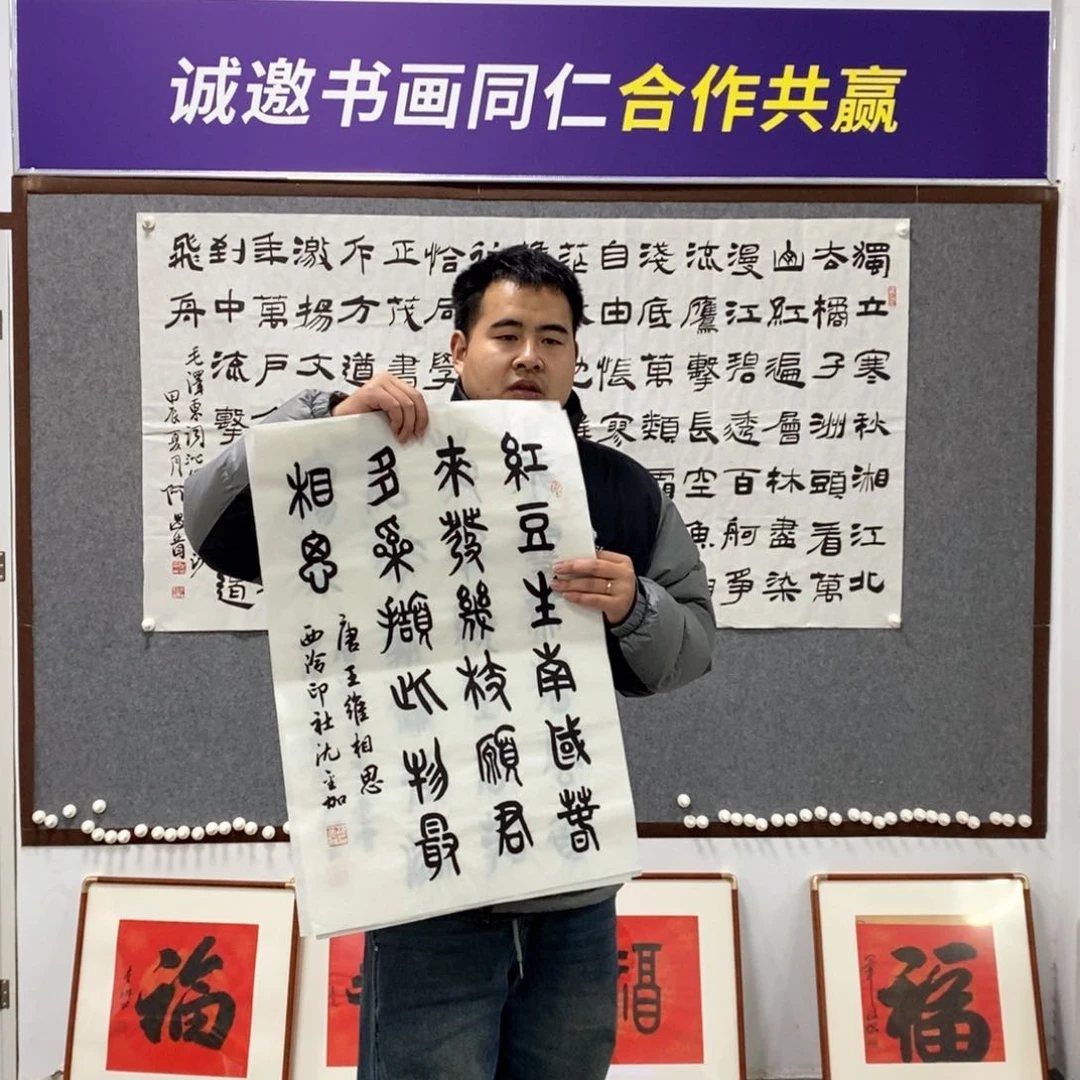 诚邀书画同仁合作共赢
獨立寒秋湘江北
去橘子洲頭看萬
山紅遍層林盡染
漫江碧透百舸爭
流鷹擊長空魚
淺底萬類霜
自由悵寥
茫
恰同學
正茂書
斥方遒
激揚文
年萬戶
到中流擊
飛舟
毛澤東詞沁
甲辰夏月
紅豆生南國春
來發幾枝願君
多采擷此物最
相思
唐王維相思
西泠印社沈
福
福
福